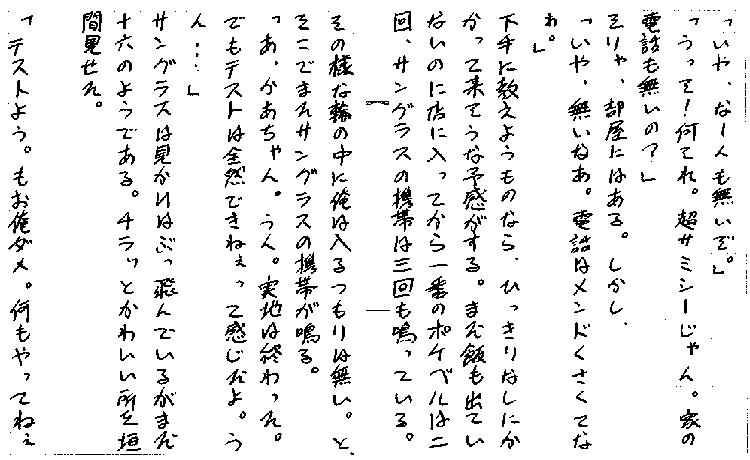 「いや、なーんも無いぞ。」
「うっそ!何てれ。超サミシーじゃん。家の
電話も無いの?」
そりゃ、部屋にはある。しかし、
「いや、無いなあ。電話はメンドくさくてな
わ。」
下手に教えようものなら、ひっきりなしにか
かって来そうな予感がする。まだ飯も出てい
ないのに店に入ってから一番のポケベルは二
回、サングラスの携帯は三回も鳴っている。
その様な輪の中に俺は入るつもりは無い。と、
そこでまたサングラスの携帯が鳴る。
「あ、かあちゃん。うん。実地は終わった。
でもテストは全然できねぇって感じだよ。う
ん…」
サングラスは見かけはぶっ飛んでいるがまだ
十六のようである。チラッとかわいい所を垣
間見せた。
「テストよう。もお俺ダメ。何もやってねぇ